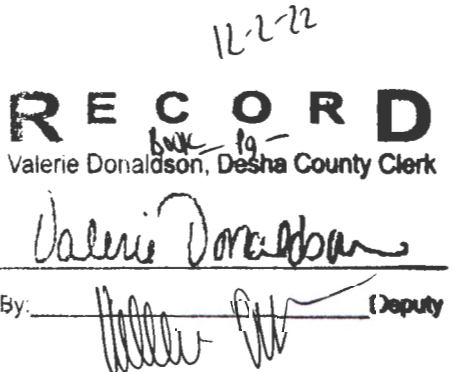 12-2-22
RECORD
Book Pg
Valerie Donaldson, Desha County Clerk
Valerie Donaldson
By: Deputy